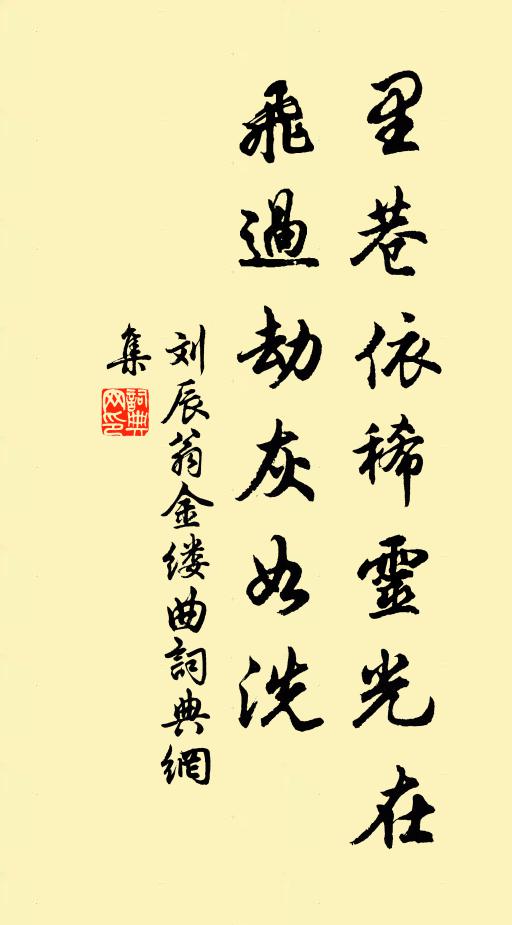 里巷依稀靈光在
飛過劫灰如洗
刘辰翁金缕曲詞典網
集
詞典網印